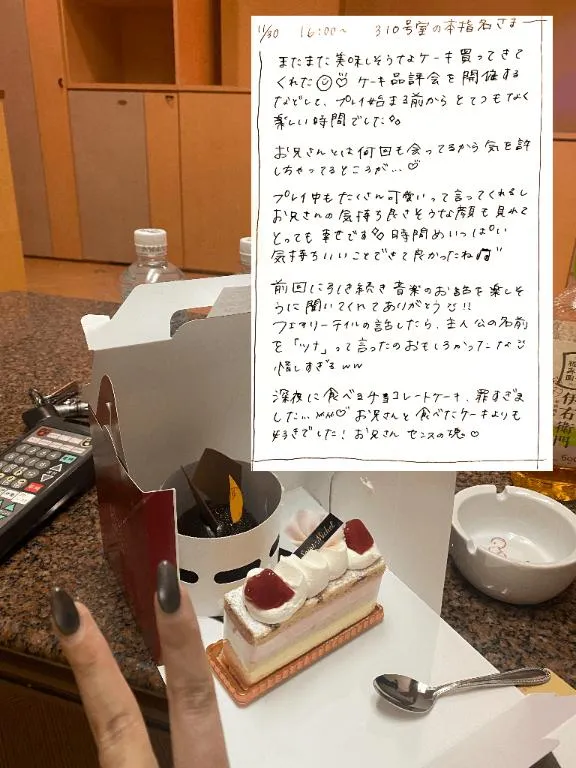 11/30 16:00~ 310号室の本指名さま
またまた美味しそうなケーキ買ってきて
くれた♡ ケーキ品評会を開催する
などして、プレイ始まる前からとてつもなく
楽しい時間でした
お兄さんとは何回も会ってるから気を許
しちゃってるところが…♡
プレイ中もたくさん可愛いって言ってくれるし
お兄さんの気持ち良さそうな顔も見れて
とっても幸せです 時間めいっぱい
気持ちいいことできて良かったね
前回に引き続き音楽のお話を楽しそ
うに聞いてくれてありがとう!!
フェアリーテイルの話したら、主人公の名前
を「ツナ」って言ったのおもしろかったな
惜しすぎるww
深夜に食べるチョコレートケーキ、罪すぎま
した…♡ お兄さんと食べたケーキよりも
好きでした! お兄さん センスの塊♡
伊右衛門